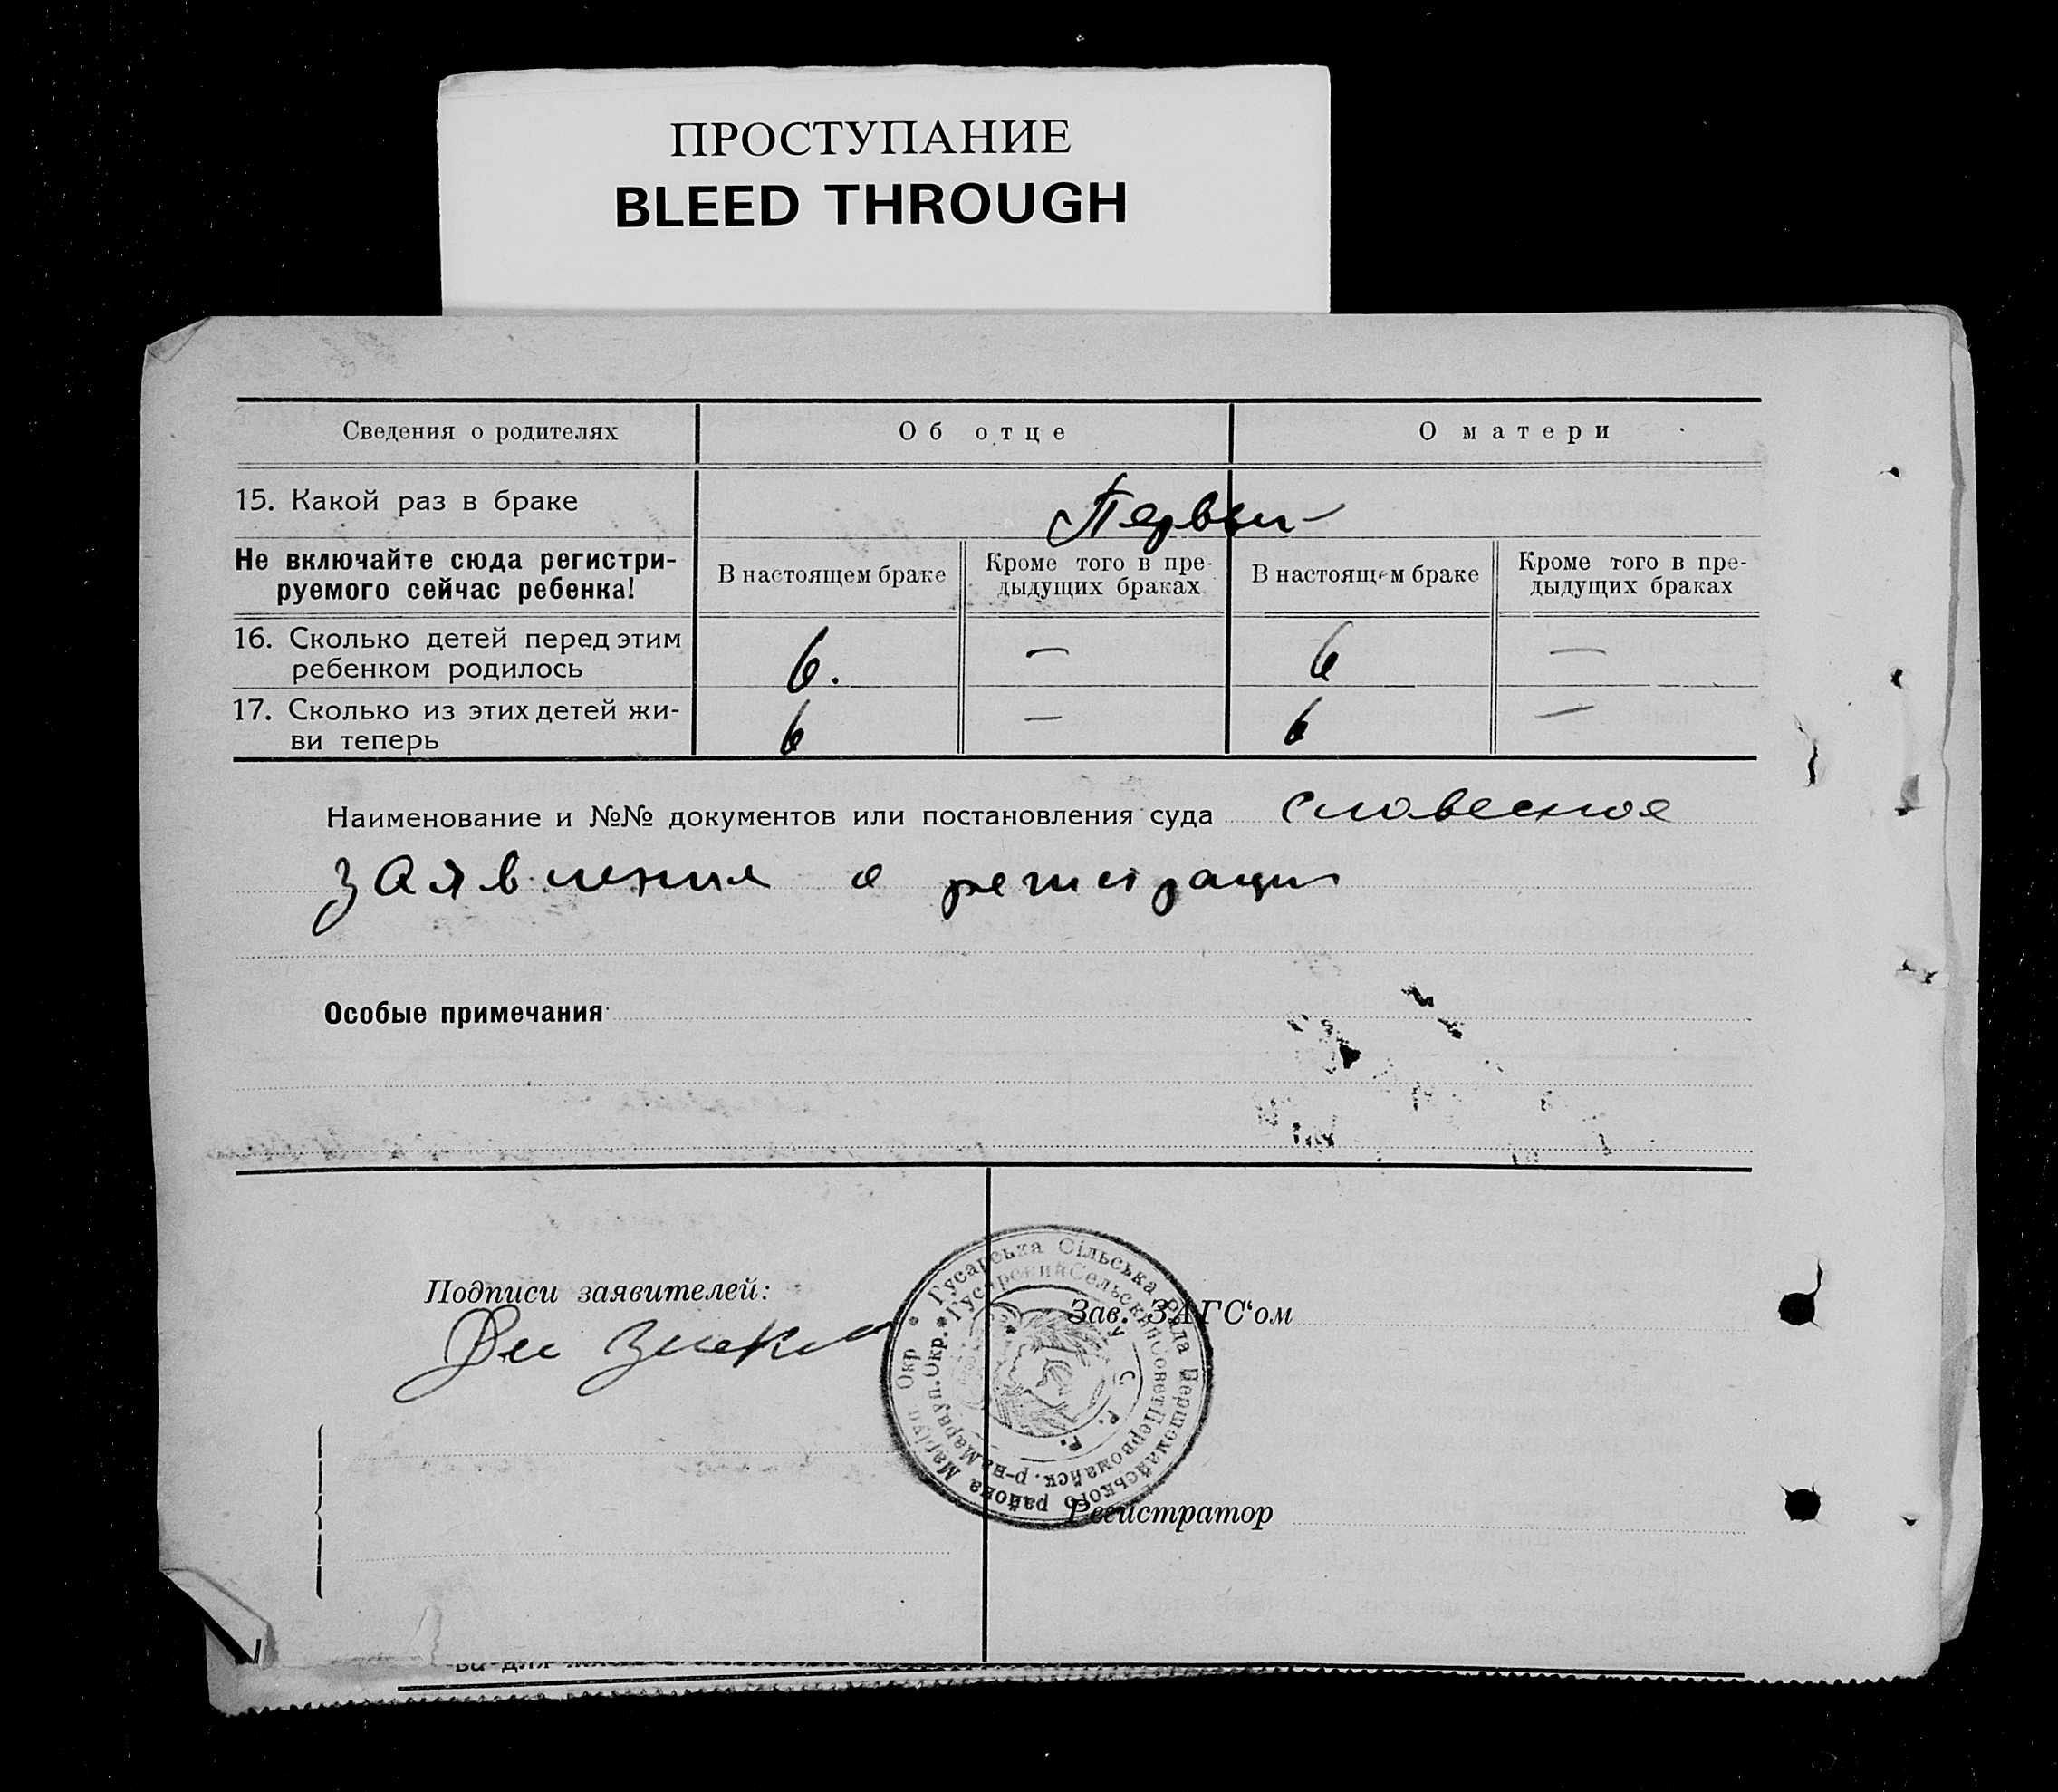 ПРОСТУПАНИЕ
BLEED THROUGH
Сведения о родителях Об отце О матери
15. Какой раз в браке Первый
Не включайте сюда регистри-
руемого сейчас ребенка!
В настоящем браке
Кроме того в пре-
дыдущих браках
В настоящем браке
Кроме того в пре-
дыдущих браках
16. Сколько детей перед этим
ребенком родилось 6. — 6 —
17. Сколько из этих детей жи-
ви теперь 6 — 6 —
Наименование и №№ документов или постановления суда словесное
заявление о регистрации
Особые примечания
Подписи заявителей:
Зав. ЗАГС‘ом
Регистратор
* Гусарська Сільська Рада Першомайського района Маріуп Окр
* Гусарский Сельский Совет Первомайск. р-на Мариуп. Окр.
У. С. Р. Р.